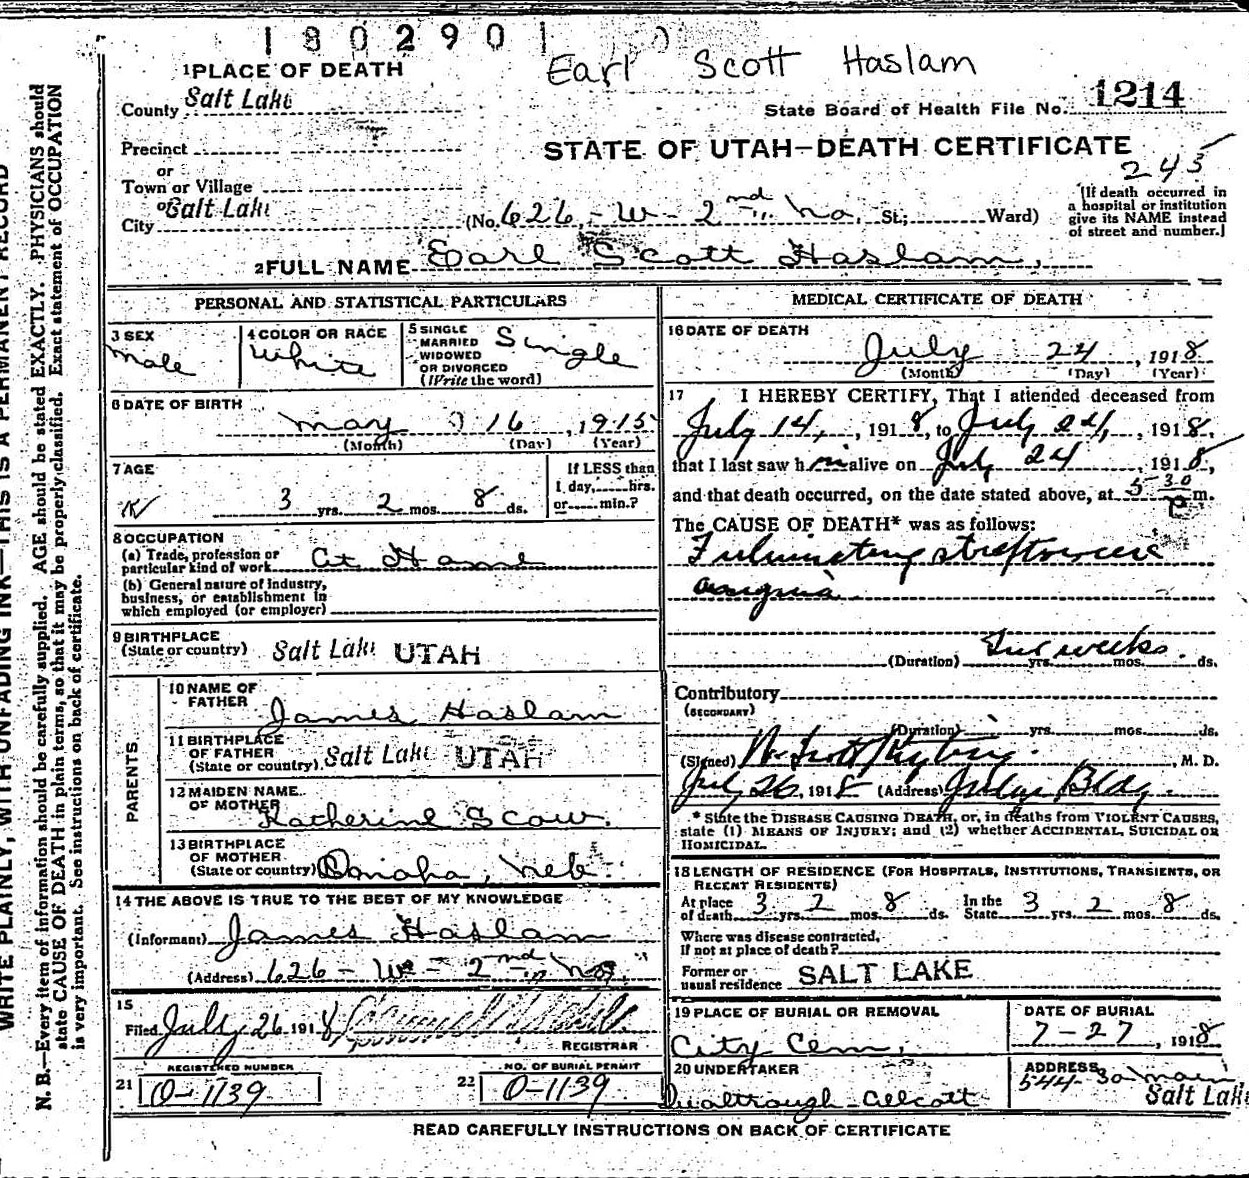 1802901
Earl Scott Haslam
1 PLACE OF DEATH
County Salt Lake
State Board of Health File No. 1214
Precinct
or
Town or Village
or
City Salt Lake
STATE OF UTAH—DEATH CERTIFICATE
245
(No. 626 - W - 2nd No. St.; Ward)
[If death occurred in
a hospital or institution
give its NAME instead
of street and number.]
2 FULL NAME Earl Scott Haslam,
PERSONAL AND STATISTICAL PARTICULARS
3 SEX
Male
4 COLOR OR RACE
White
5 SINGLE
MARRIED
WIDOWED
OR DIVORCED
(Write the word)
Single
6 DATE OF BIRTH
May 16, 1915
(Month) (Day) (Year)
7 AGE
3 yrs. 2 mos. 8 ds.
If LESS than
1 day, hrs.
or min.?
8 OCCUPATION
(a) Trade, profession or
particular kind of work At Home
(b) General nature of industry,
business, or establishment in
which employed (or employer)
9 BIRTHPLACE
(State or country) Salt Lake UTAH
PARENTS
10 NAME OF
FATHER James Haslam
11 BIRTHPLACE
OF FATHER
(State or country) Salt Lake UTAH
12 MAIDEN NAME
OF MOTHER Katherine Scow.
13 BIRTHPLACE
OF MOTHER
(State or country) Omaha, Neb.
14 THE ABOVE IS TRUE TO THE BEST OF MY KNOWLEDGE
(Informant) James Haslam
(Address) 626 - W - 2nd No.
15
Filed July 26 1918
REGISTRAR
REGISTERED NUMBER
21 O-1139
NO. OF BURIAL PERMIT
22 O-1139
MEDICAL CERTIFICATE OF DEATH
16 DATE OF DEATH
July 24, 1918
(Month) (Day) (Year)
17 I HEREBY CERTIFY, That I attended deceased from
July 14, 1918, to July 24, 1918,
that I last saw him alive on July 24, 1918,
and that death occurred, on the date stated above, at 5 30 P m.
The CAUSE OF DEATH* was as follows:
Fulminating streptococcic
angina
(Duration) Two weeks. yrs. mos. ds.
Contributory
(SECONDARY)
(Duration) yrs. mos. ds.
(Signed) M. D.
July 26, 1918 (Address) Judge Bldg.
* State the DISEASE CAUSING DEATH, or, in deaths from VIOLENT CAUSES,
state (1) MEANS OF INJURY; and (2) whether ACCIDENTAL, SUICIDAL OR
HOMICIDAL.
18 LENGTH OF RESIDENCE (FOR HOSPITALS, INSTITUTIONS, TRANSIENTS, OR
RECENT RESIDENTS)
At place
of death 3 yrs. 2 mos. 8 ds. In the
State 3 yrs. 2 mos. 8 ds.
Where was disease contracted,
If not at place of death?
Former or
usual residence SALT LAKE
19 PLACE OF BURIAL OR REMOVAL
City Cem,
DATE OF BURIAL
7-27, 1918
20 UNDERTAKER
Qualtrough-Allcott
ADDRESS
544 So Main
Salt Lake
READ CAREFULLY INSTRUCTIONS ON BACK OF CERTIFICATE
WRITE PLAINLY, WITH UNFADING INK—THIS IS A PERMANENT RECORD
N. B.—Every item of information should be carefully supplied. AGE should be stated EXACTLY. PHYSICIANS should
state CAUSE OF DEATH in plain terms, so that it may be properly classified. Exact statement of OCCUPATION
is very important. See instructions on back of certificate.